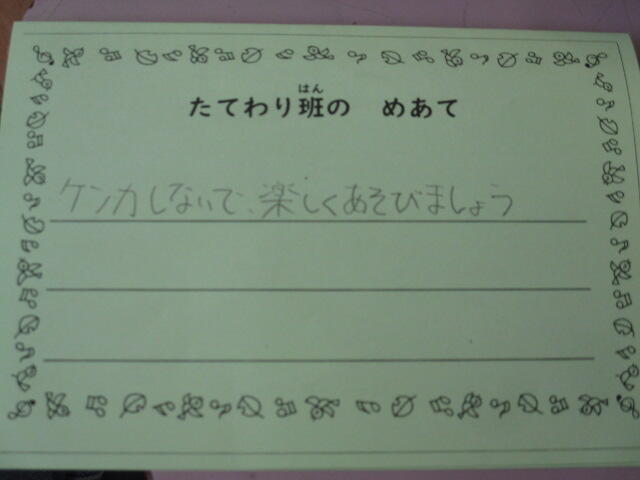 はん
たてわり班の　めあて
ケンカしないで、楽しくあそびましょう